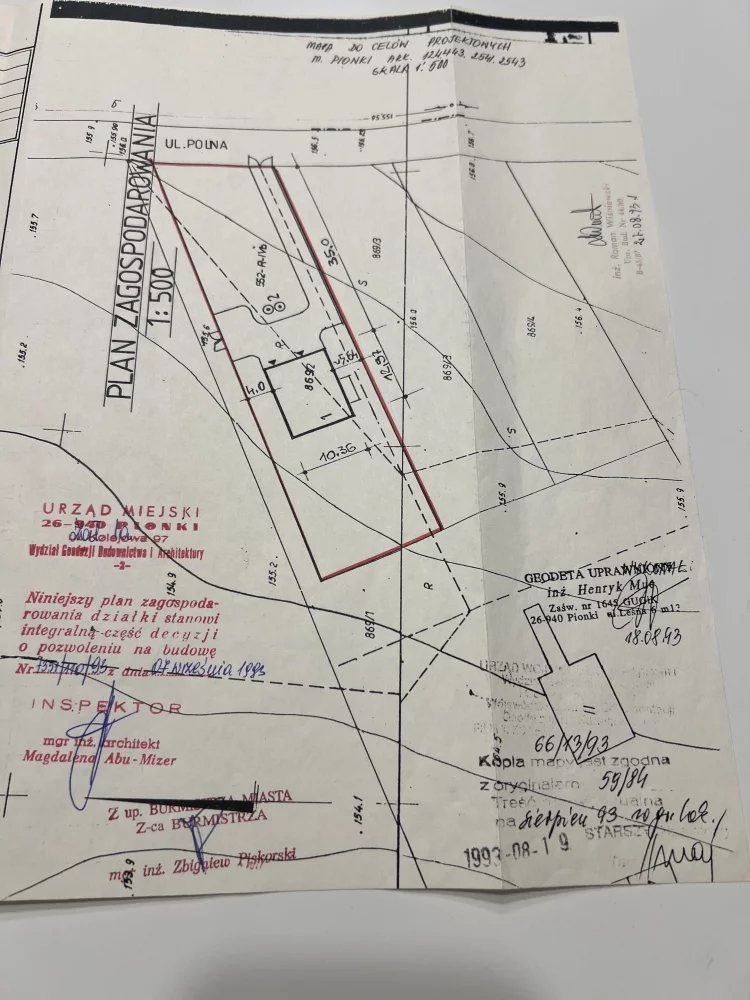 MAPA DO CELÓW PROJEKTOWYCH
M. PIONKI ARK. 124.443. 2541. 2543
SKALA 1:500
PLAN ZAGOSPODAROWANIA
1:500
UL. POLNA
6
155.9
155.90
156.0
155.50
156.7
156.0
155.7
155.2
35.0
869/3
S
S52-R-IVb
2
R
869/2
1
4.0
12.97
10.36
156.0
869/3
869/4
156.4
S
155.9
155.9
155.2
154.9
869/1
R
inż. Roman Wiśniewski
27.08.93
URZĄD MIEJSKI
26-940 PIONKI
Wydział Geodezji Budownictwa i Architektury
-2-
Niniejszy plan zagospoda-
rowania działki stanowi
integralną część decyzji
o pozwoleniu na budowę
Nr z dnia 07 września 1993
INSPEKTOR
mgr inż. architekt
Magdalena Abu-Mizer
Z up. BURMISTRZA MIASTA
Z-ca BURMISTRZA
mgr inż. Zbigniew Piskorski
153.9
154.1
154.5
GEODETA UPRAWNIONY
inż. Henryk Muc
Zaśw. nr 1645 GUGiK
26-940 Pionki ul. Leśna 6 m 12
18.08.93
II
66/13/93
Kopia mapy jest zgodna
z oryginałem 59/84
na sierpień 93
STARSZ
1993-08-19